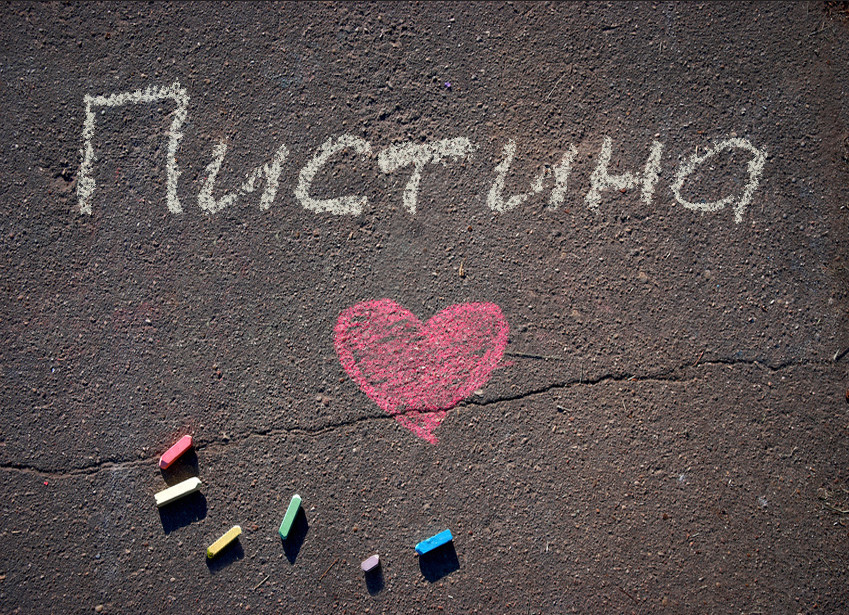 Пистина